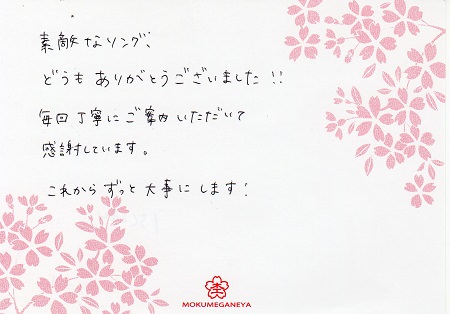 素敵なリング、
どうもありがとうございました!!
毎回丁寧にご案内いただいて
感謝しています。
これからずっと大事にします!
MOKUMEGANEYA